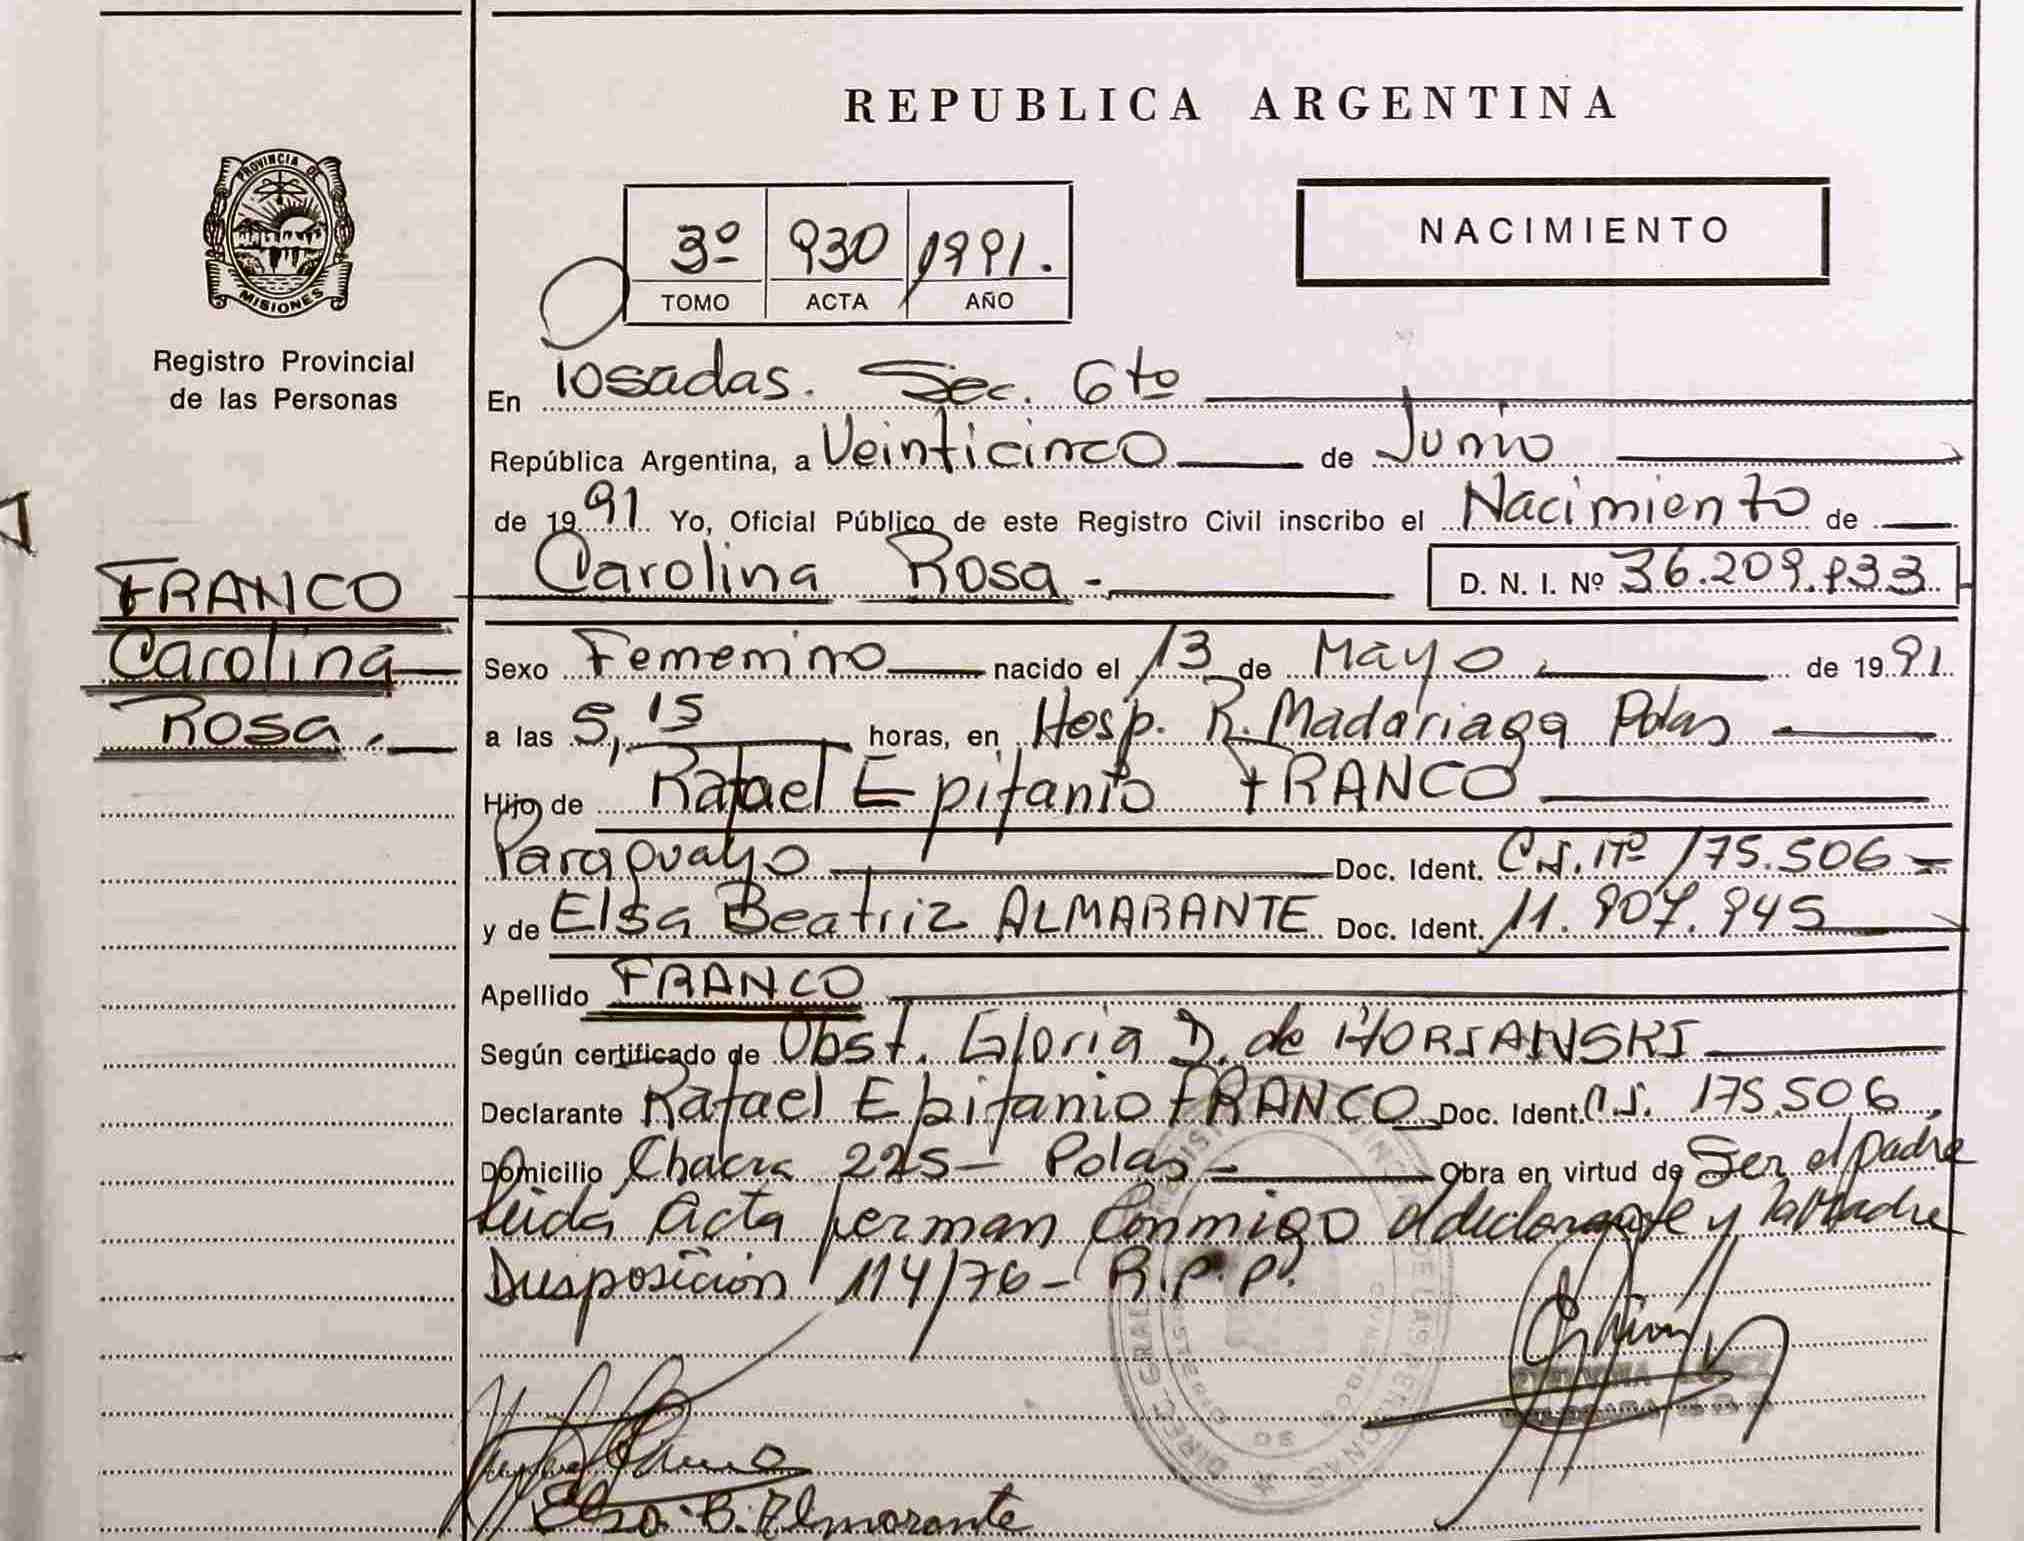 REPUBLICA ARGENTINA
PROVINCIA DE
MISIONES
Registro Provincial
de las Personas
3º 930 1991.
TOMO ACTA AÑO
NACIMIENTO
En Posadas. Sec. 6to
República Argentina, a Veinticinco de Junio
de 1991 Yo, Oficial Público de este Registro Civil inscribo el Nacimiento de
Carolina Rosa - D. N. I. Nº 36.209.933
FRANCO
Carolina
Rosa.
Sexo Femenino nacido el 13 de Mayo de 1991
a las 5,15 horas, en Hosp. R. Madariaga Pdas
Hijo de Rafael Epifanio FRANCO
Paraguayo Doc. Ident. C.I. Nº 175.506
y de Elsa Beatriz ALMARANTE Doc. Ident. 11.907.945
Apellido FRANCO
Según certificado de Obst. Gloria D. de
Declarante Rafael Epifanio FRANCO Doc. Ident. C.I. 175.506
Domicilio Chacra 225- Pdas- Obra en virtud de Ser el padre
Leida Acta firman Conmigo el declarante y la Madre
Disposición 114/76- R.P.P.
Elsa B. Almarante